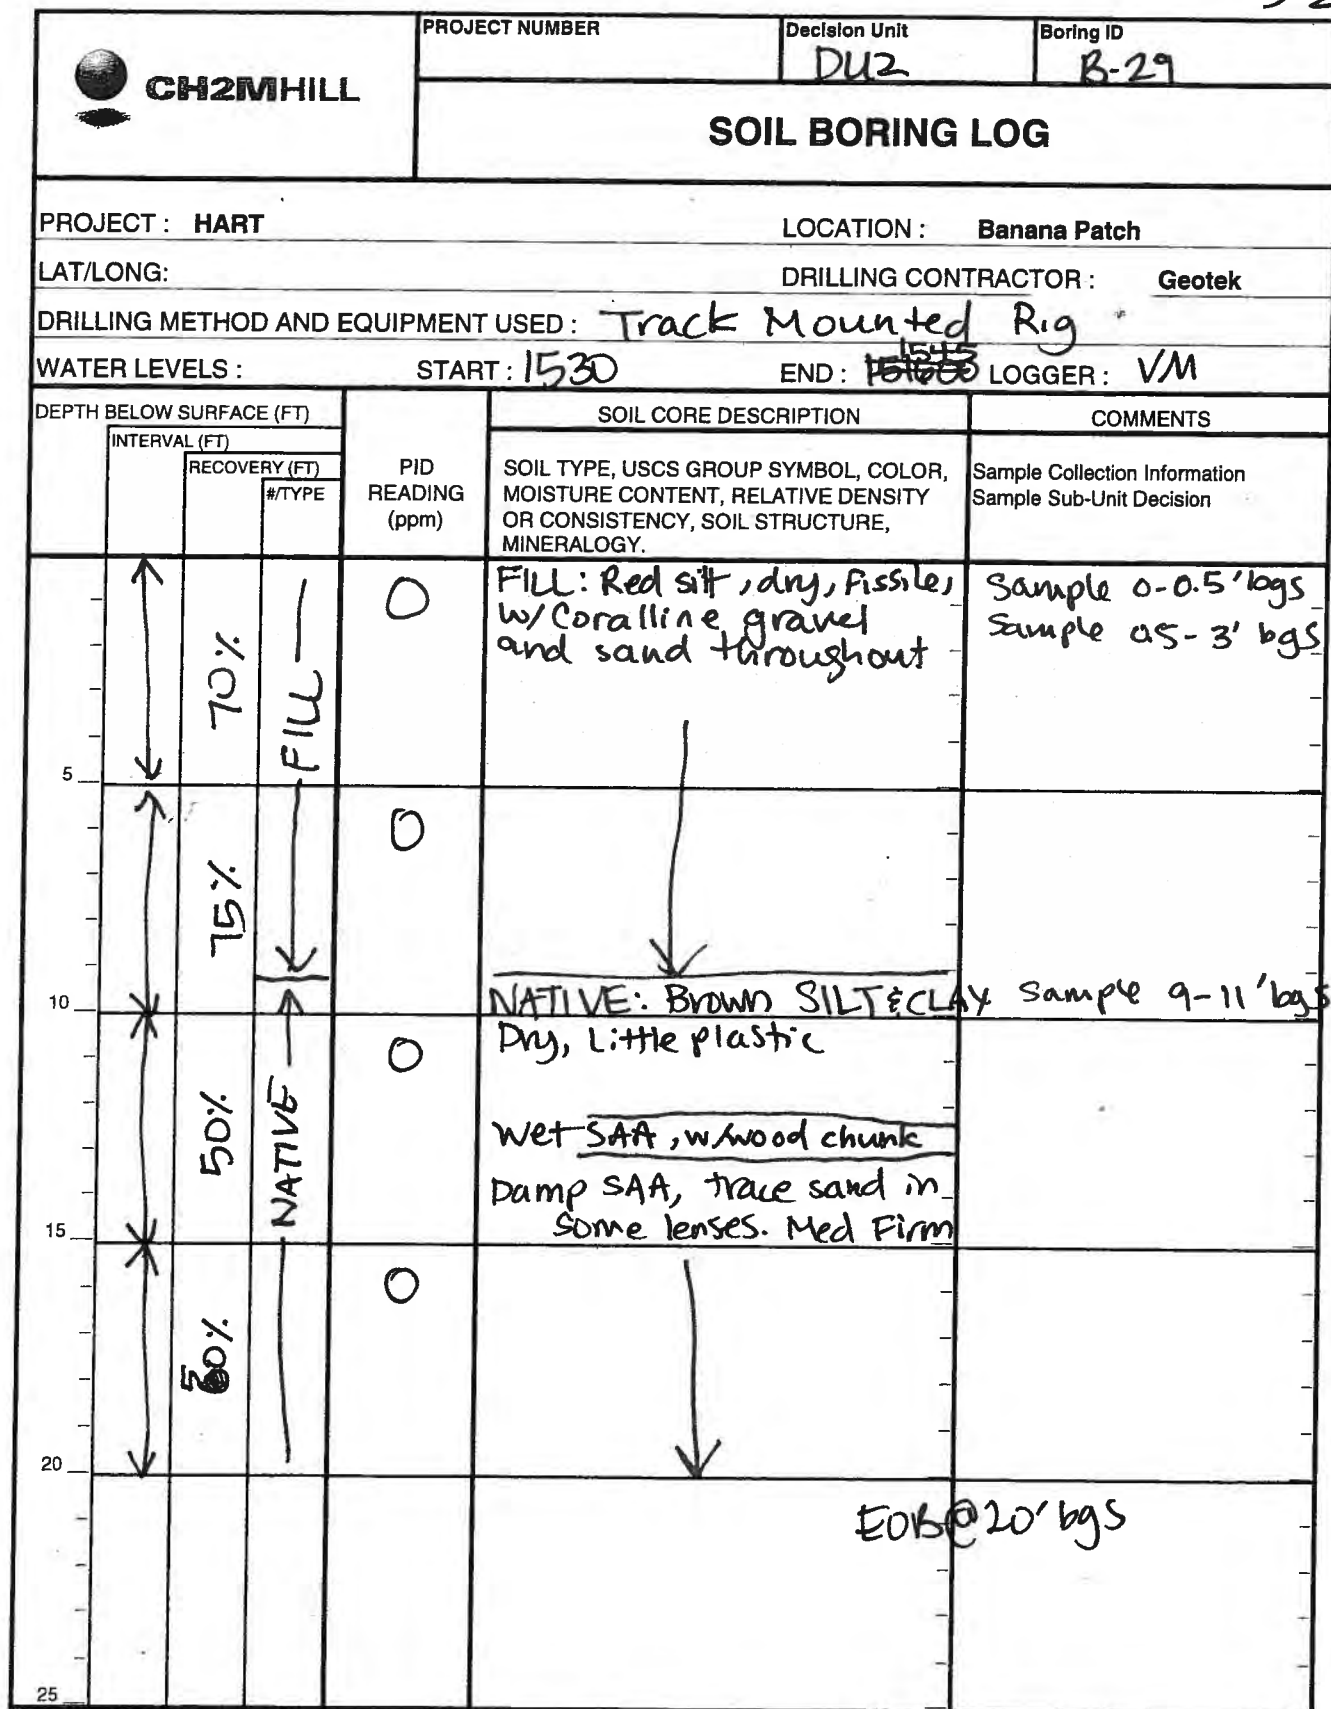 PROJECT NUMBER
Decision Unit
DU2
Boring ID
B-29
CH2MHILL
SOIL BORING LOG
PROJECT : HART
LOCATION : Banana Patch
LAT/LONG:
DRILLING CONTRACTOR : Geotek
DRILLING METHOD AND EQUIPMENT USED : Track Mounted Rig
WATER LEVELS : START : 1530 END : 1545 LOGGER : VM
DEPTH BELOW SURFACE (FT)
INTERVAL (FT)
RECOVERY (FT)
#/TYPE
PID
READING
(ppm)
SOIL CORE DESCRIPTION
SOIL TYPE, USCS GROUP SYMBOL, COLOR,
MOISTURE CONTENT, RELATIVE DENSITY
OR CONSISTENCY, SOIL STRUCTURE,
MINERALOGY.
COMMENTS
Sample Collection Information
Sample Sub-Unit Decision
70%
FILL
0
FILL: Red silt, dry, Fissile,
w/Coralline gravel
and sand throughout
Sample 0-0.5' bgs
Sample 0.5-3' bgs
5
75%
0
10
NATIVE: Brown SILT & CLAY
Sample 9-11' bgs
50%
NATIVE
0
Dry, Little plastic
Wet SAA, w/wood chunk
Damp SAA, trace sand in
some lenses. Med Firm
15
0
20
EOB@20' bgs
25